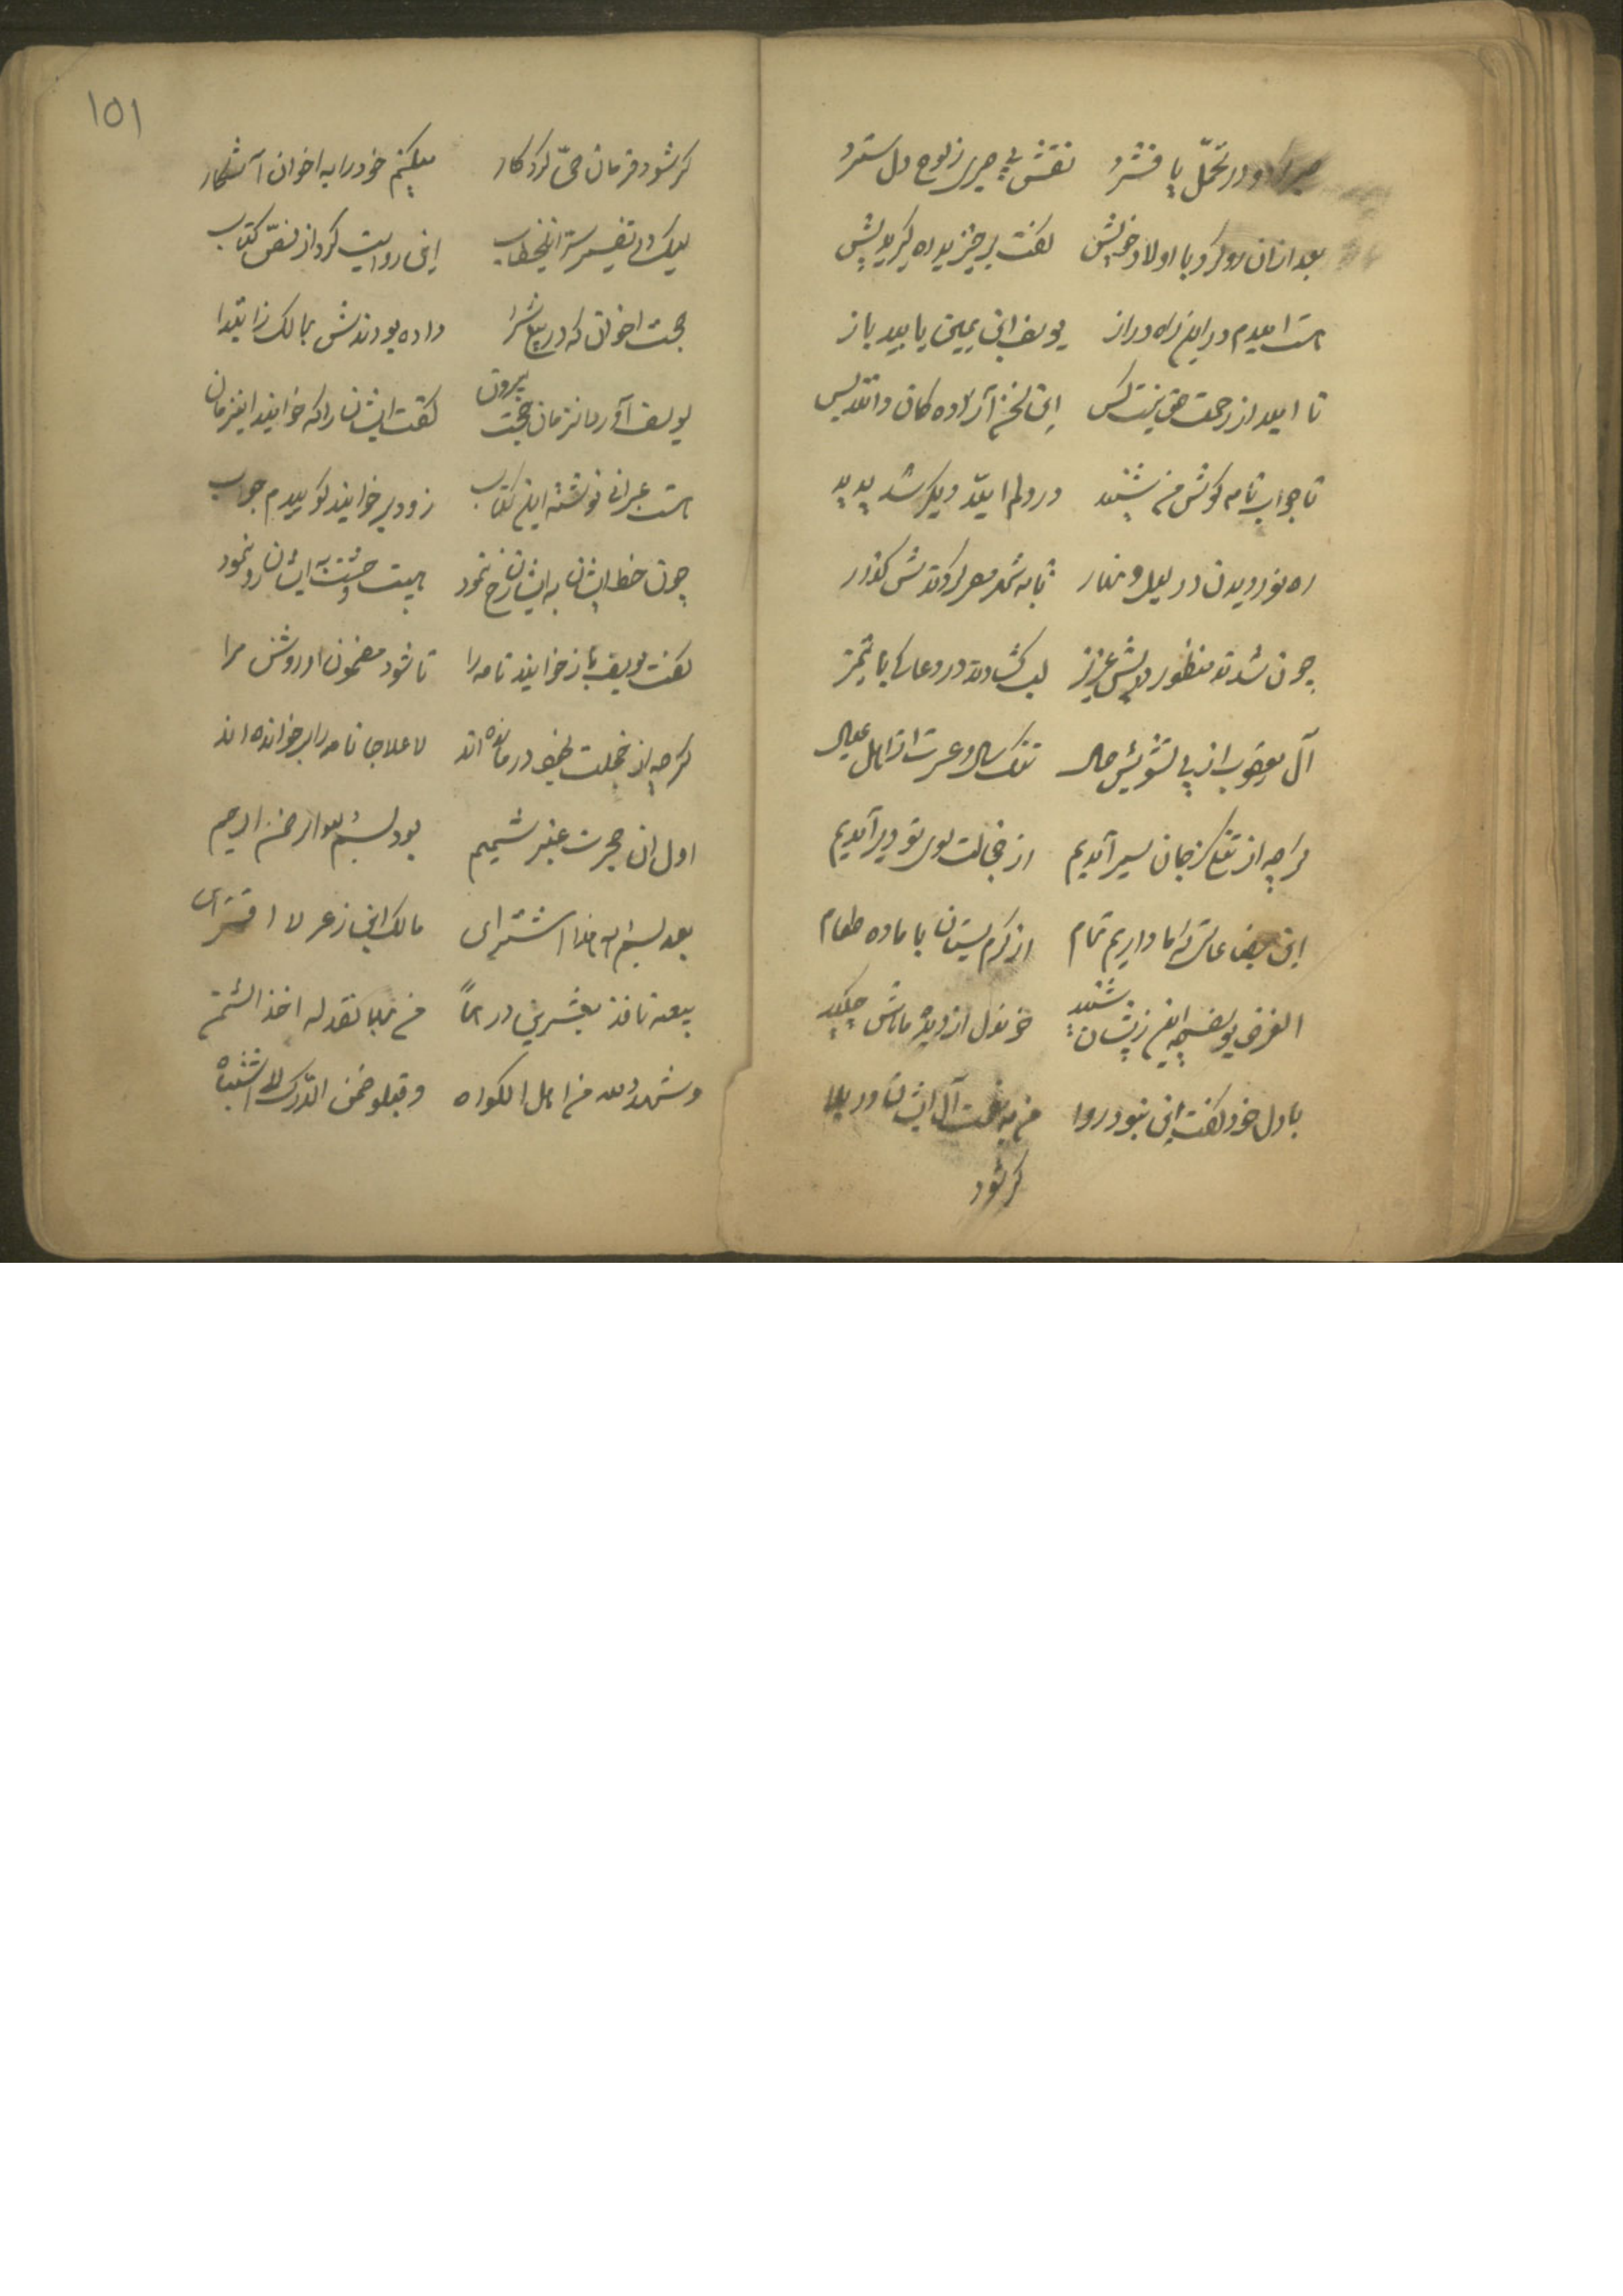 صبر کرد و در تحمّل پا فشرد نقش بی صبری ز لوح دل سترد
بعد ازان رو کرد با اولاد خویش گفت برخیزید ره گیرید پیش
هست امیدم در این راه دراز یوسف ابن یمین یابید باز
نا امید از رحمت حق نیست کس
تا جواب نامه گوش من شنید در دلم امید دیگر شد پدید
ره نوردیدن در لیل و نهار تا به شهر مصر کردندش گذار
چون شدند منظور پیش عزیز لب گشادند در دعا با تمیز
آل یعقوب از پی تشویش حال تنگ سال و عسرت از اهل عیال
گرچه از تنگی ز جان سیر آمدیم از خجالت سوی تو دیر آمدیم
این بضاعاتی که ما داریم تمام از کرم بستان با ما ده طعام
الغرض یوسف چه این زیشان شنید خون دل از دیده هاش چکید
با دل خود گفت این نبود روا من به نعمت آل ایشان در بلا
گر شود
۱۵۱
گر شود فرمان حیّ کردکار میکنم خود را به اخوان آشکار
لیک در تفسیر ستر اینخطاب این روایت کرد از نصّ کتاب
حجت اخوان که در بیع شرا داده بودندش بمالک ز ابتدا
یوسف آورد آنزمان حجت بیرون گفت ایشان را که خوانید اینزمان
هست عبرانی نوشته این کتاب زود بر خوانید گوییدم جواب
چون خط ایشان به ایشان رخ نمود هیبت وحشت به ایشان رو نمود
گفت یوسف باز خوانید نامه را تا شود مضمون او روشن مرا
گرچه از خجلت بخود درمانده اند لاعلاجا نامه را بر خوانده اند
اول ان حجرت عنبر شمیم بود بسم الله الرحمن الرحیم
بعد بسم الله هذا اشترای مالک ابن زعر لا افترای
بیعه نافذ بعشرین درهماً من نقد له اخذ
وشهد الله من اهل الکواه و قبلو ضمن الدّرک لا اشتباه